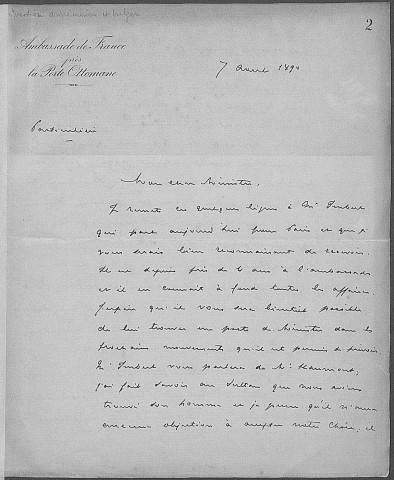 2
Ambassade de France
près
la Porte Ottomane
7 avril 1894
Particulière
Mon cher Ministre,
Je remets ces quelques lignes à Mr Imbert
qui part aujourd'hui pour Paris et que je
vous serais bien reconnaissant de recevoir.
Il est depuis près de 4 ans à l'ambassade
et il en connait à fond toutes les affaires.
J'espère qu'il vous sera bientôt possible
de lui trouver un poste de Ministre dans le
prochain mouvement qu'il est permis de prévoir.
Mr Imbert vous parlera de Mr
j'ai fait savoir au Sultan que nous avions
trouvé son homme et je pense qu'il n'aura
aucune objection à accepter notre choix, et